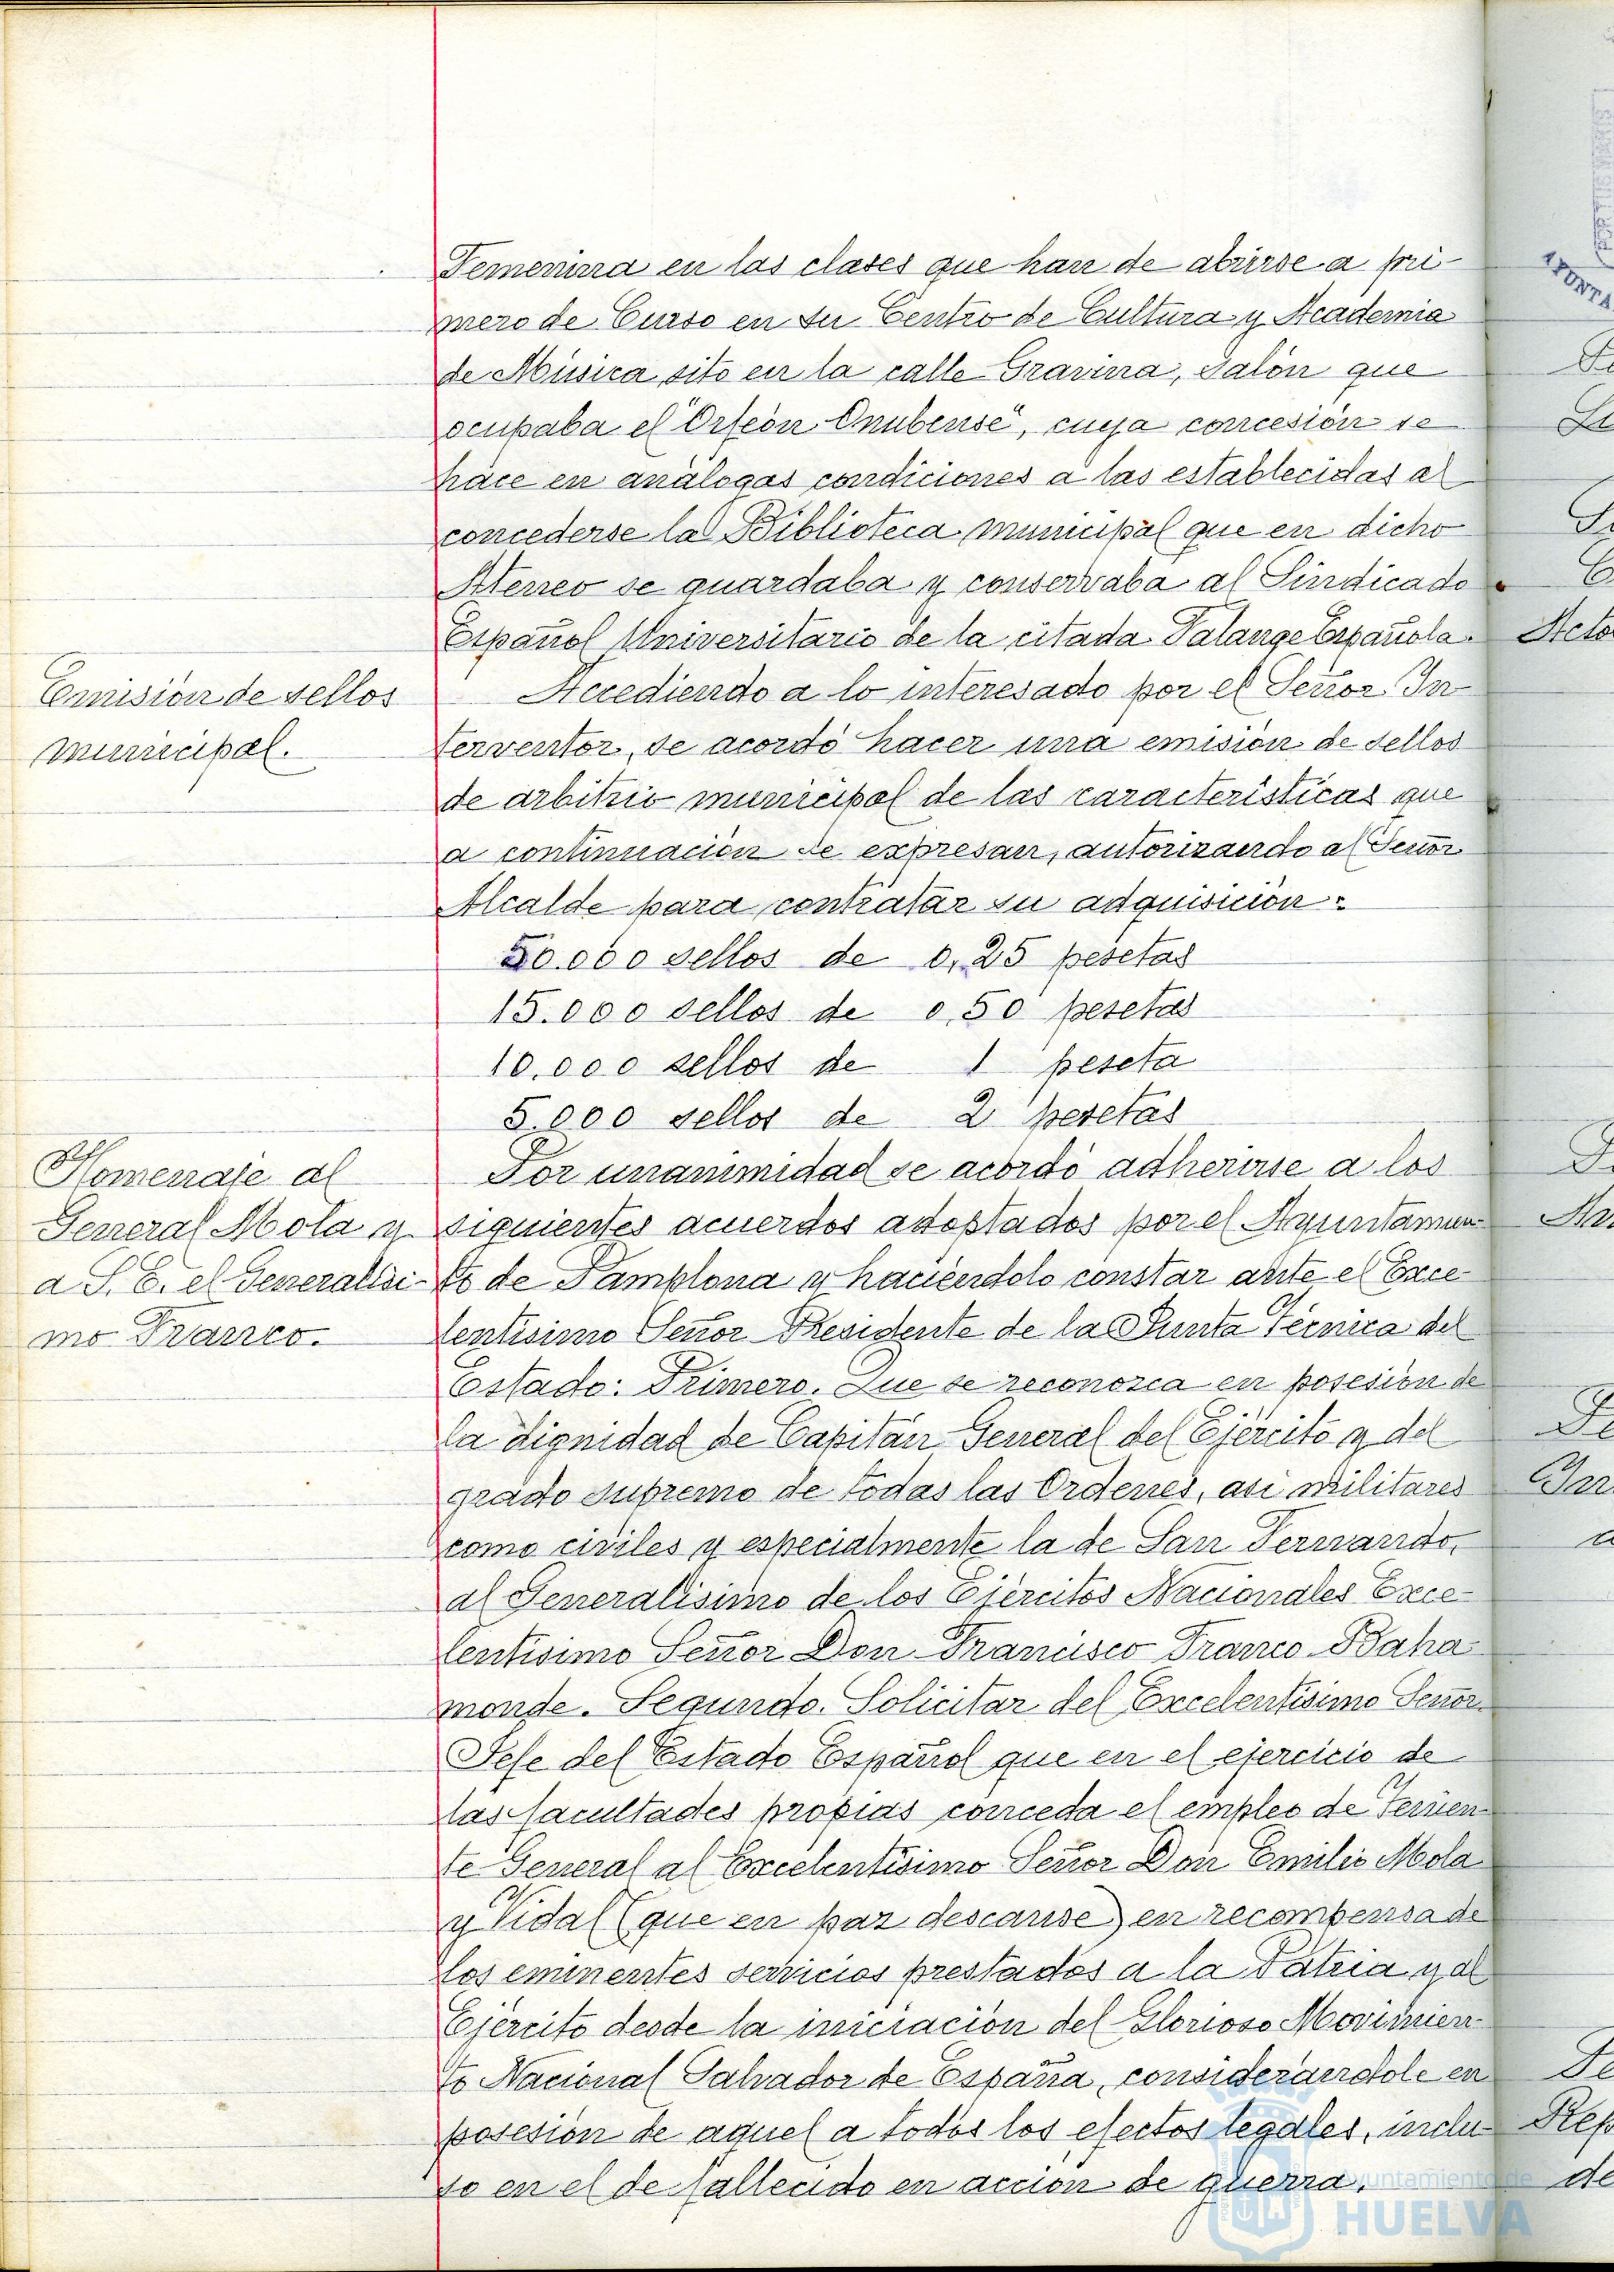 Femenina en las clases que han de abrirse a pri-
mero de Curso en su Centro de Cultura y Academia
de Música sito en la calle Gravina, Salón que
ocupaba el "Orfeón Onubense", cuya concesión se
hace en análogas condiciones a las establecidas al
concederse la Biblioteca municipal que en dicho
Ateneo se guardaba y conservaba al Sindicado
Español Universitario de la citada Falange Española.
Emisión de sellos
municipal.
Accediendo a lo interesado por el Señor In-
terventor, se acordó hacer una emisión de sellos
de arbitrio municipal de las características que
a continuación se expresan, autorizando al Señor
Alcalde para contratar su adquisición:
50.000 sellos de 0,25 pesetas
15.000 sellos de 0,50 pesetas
10.000 sellos de 1 peseta
5.000 sellos de 2 pesetas
Homenaje al
General Mola y
a S. E. el Generalísi-
mo Franco.
Por unanimidad se acordó adherirse a los
siguientes acuerdos adoptados por el Ayuntamien-
to de Pamplona y haciéndolo constar ante el Exce-
lentísimo Señor Presidente de la Junta Técnica del
Estado: Primero. Que se reconozca en posesión de
la dignidad de Capitán General del Ejército y del
grado supremo de todas las Ordenes, asi militares
como civiles y especialmente la de San Fernando,
al Generalísimo de los Ejércitos Nacionales Exce-
lentísimo Señor Don Francisco Franco Baha-
monde. Segundo. Solicitar del Excelentísimo Señor
Jefe del Estado Español que en el ejercicio de
las facultades propias conceda el empleo de Tenien-
te General al Excelentísimo Señor Don Emilio Mola
y Vidal (que en paz descanse) en recompensa de
los eminentes servicios prestados a la Patria y al
Ejército desde la iniciación del Glorioso Movimien-
to Nacional Salvador de España, considerándole en
posesión de aquel a todos los efectos legales, inclu-
so en el de fallecido en acción de guerra.
Ayuntamiento de
HUELVA